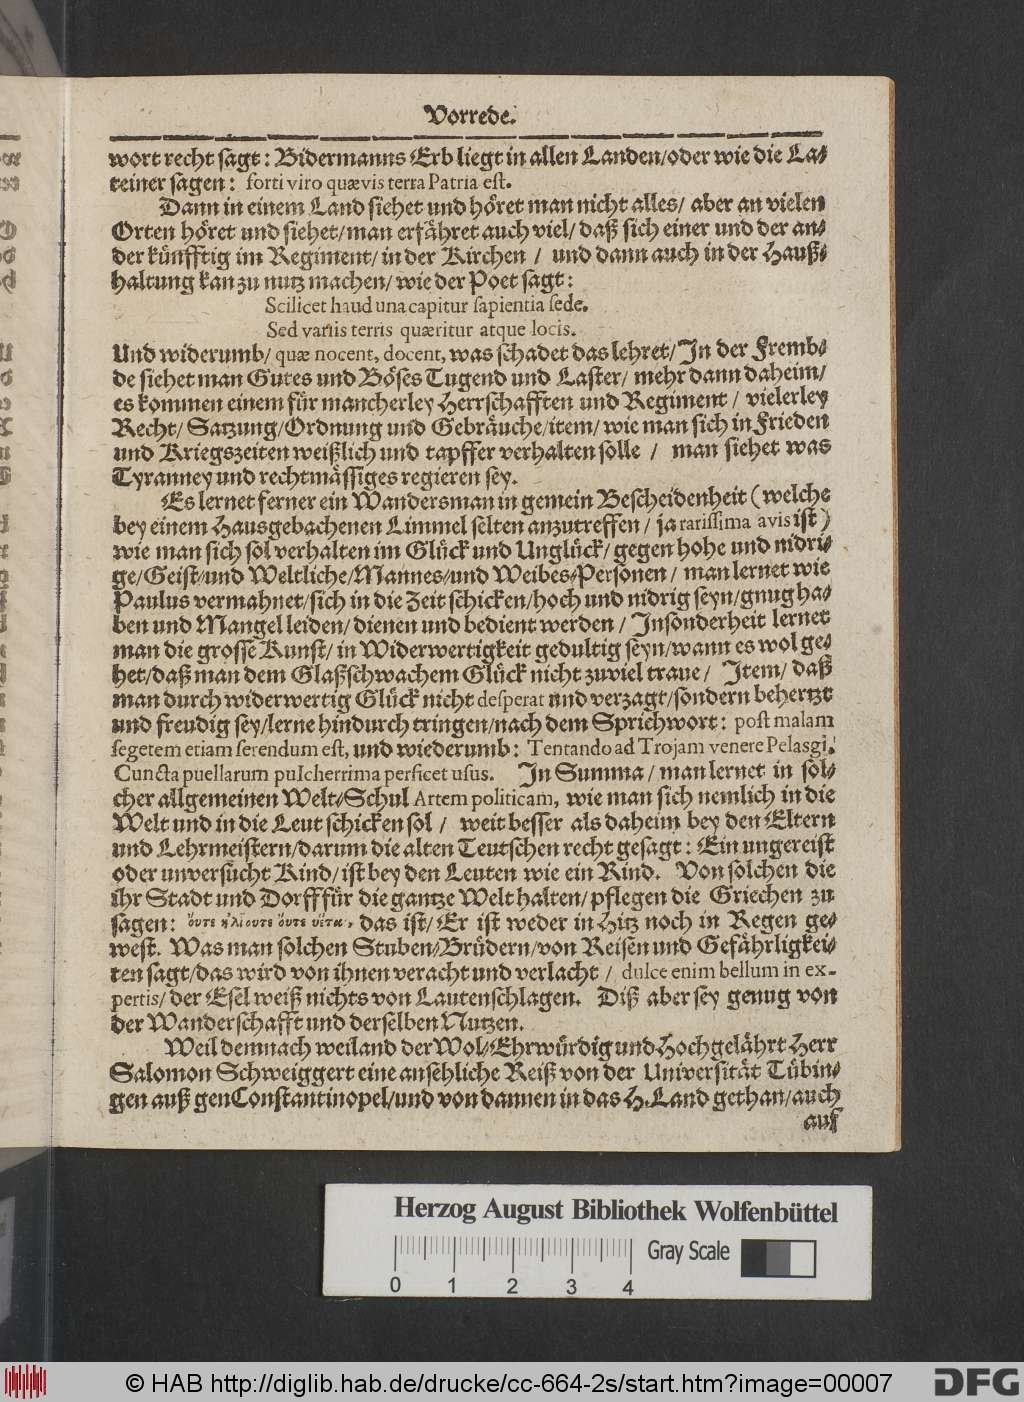 Vorrede.
wort recht sagt: Bidermanns Erb liegt in allen Landen/oder wie die La-
teiner sagen: forti viro quævis terra Patria est.
Dann in einem Land siehet und höret man nicht alles/ aber an vielen
Orten höret und siehet/man erfähret auch viel/ daß sich einer und der an-
der künfftig im Regiment/ in der Kirchen / und dann auch in der Hauß-
haltung kan zu nutz machen/ wie der Poet sagt:
Scilicet haud una capitur sapientia sede.
Sed variis terris quæritur atque locis.
Und widerumb/ quæ nocent, docent, was schadet das lehret/ In der Fremb-
de siehet man Gutes und Böses Tugend und Laster/ mehr dann daheim/
es kommen einem für mancherley Herrschafften und Regiment / vielerley
Recht/ Satzung/Ordnung und Gebräuche/item/ wie man sich in Frieden
und Kriegszeiten weißlich und tapffer verhalten solle / man siehet was
Tyranney und rechtmässiges regieren sey.
Es lernet ferner ein Wandersman in gemein Bescheidenheit (welche
bey einem Hausgebachenen Limmel selten anzutreffen / ja rarissima avis ist)
wie man sich sol verhalten im Glück und Unglück/ gegen hohe und nidri-
ge/Geist-und Weltliche/Mannes-und Weibes-Personen / man lernet wie
Paulus vermahnet/sich in die Zeit schicken/hoch und nidrig seyn/gnug ha-
ben und Mangel leiden/ dienen und bedient werden / Insonderheit lernet
man die grosse Kunst/ in Widerwertigkeit gedultig seyn/wann es wol ge-
het/daß man dem Glaßschwachem Glück nicht zuviel traue / Item/ daß
man durch widerwertig Glück nicht desperat und verzagt/sondern behertzt
und freudig sey/lerne hindurch tringen/nach dem Sprichwort: post malam
segetem etiam serendum est, und wiederumb: Tentando ad Trojam venere Pelasgi.
Cuncta puellarum pulcherrima persicet usus. In Summa / man lernet in sol-
cher allgemeinen Welt-Schul Artem politicam, wie man sich nemlich in die
Welt und in die Leut schicken sol / weit besser als daheim bey den Eltern
und Lehrmeistern/darum die alten Teutschen recht gesagt: Ein ungereist
oder unversucht Kind/ ist bey den Leuten wie ein Rind. Von solchen die
ihr Stadt und Dorff für die gantze Welt halten/ pflegen die Griechen zu
sagen: das ist/ Er ist weder in Hitz noch in Regen ge-
west. Was man solchen Stuben-Brüdern/von Reisen und Gefährligkei-
ten sagt/das wird von ihnen veracht und verlacht / dulce enim bellum in ex-
pertis/ der Esel weiß nichts von Lautenschlagen. Diß aber sey genug von
der Wanderschafft und derselben Nutzen.
Weil demnach weiland der Wol-Ehrwürdig und Hochgelährt Herr
Salomon Schweiggert eine ansehliche Reiß von der Universität Tübin-
gen auß gen Constantinopel/und von dannen in das H. Land gethan/auch
auf
Herzog August Bibliothek Wolfenbüttel
Gray Scale
0 1 2 3 4
© HAB http://diglib.hab.de/drucke/cc-664-2s/start.htm?image=00007
DFG